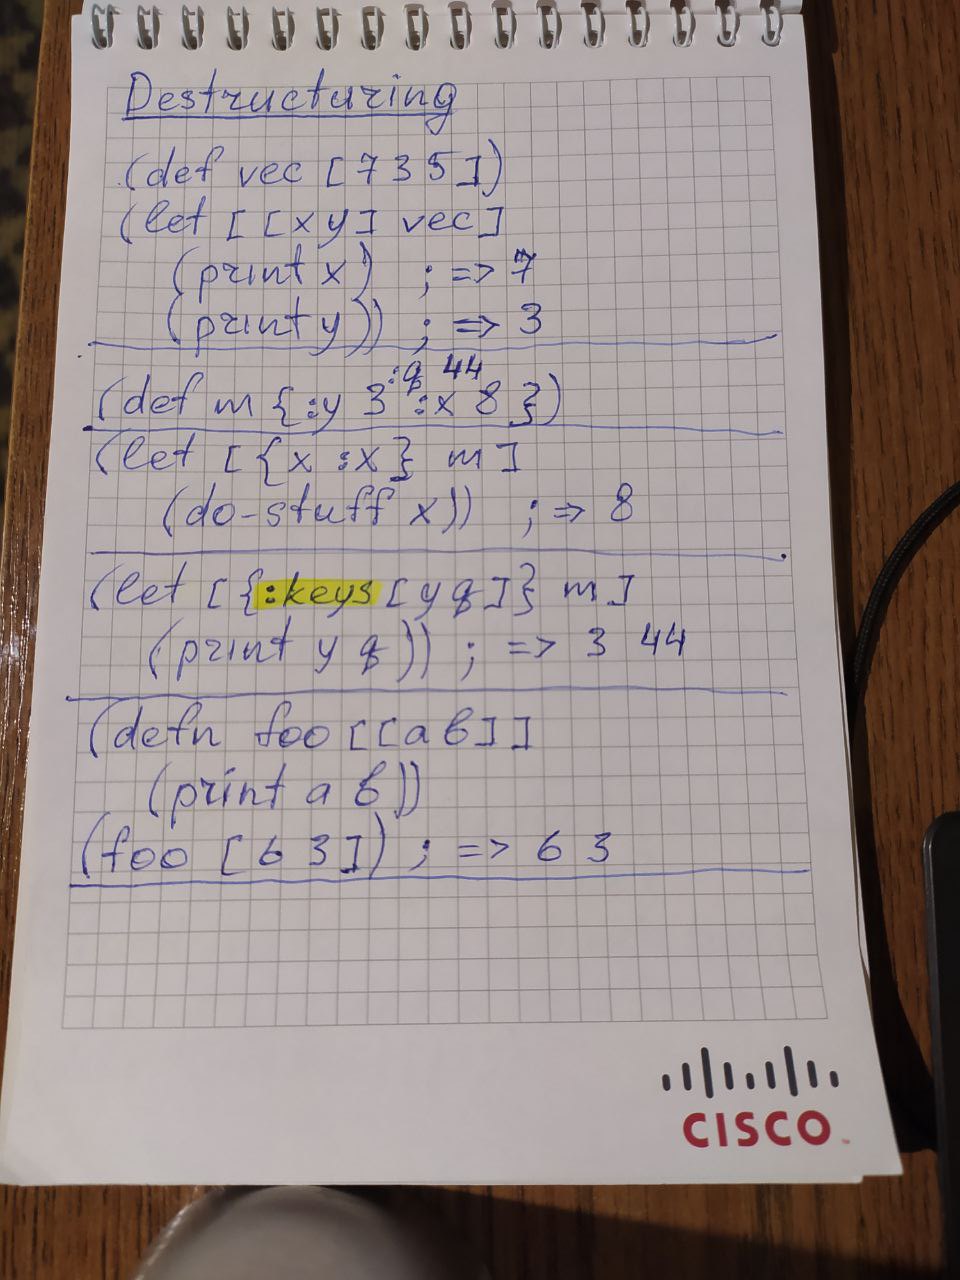 Destructuring
(def vec [7 3 5])
(let [[x y] vec]
(print x) ; => 7
(print y)) ; => 3
:q 44
(def m {:y 3 :x 8})
(let [{x :x} m]
(do-stuff x)) ; => 8
(let [{:keys [y q]} m]
(print y q)) ; => 3 44
(defn foo [[a b]]
(print a b))
(foo [6 3]) ; => 6 3
CISCO